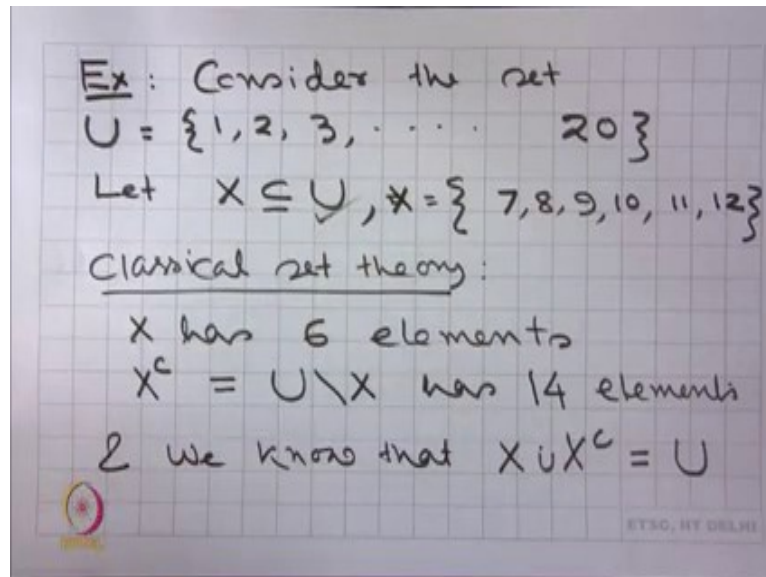 Ex: Consider the set
U = {1, 2, 3, . . . . 20}
Let X ⊆ U, X = { 7, 8, 9, 10, 11, 12}
Classical set theory:
X has 6 elements
Xᶜ = U\X has 14 elements
& We know that X ∪ Xᶜ = U
ETSC, IIT DELHI